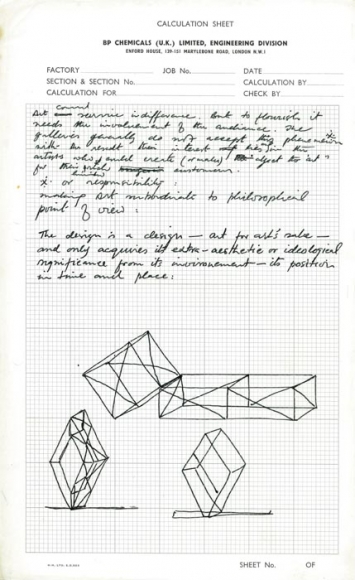 CALCULATION SHEET
BP CHEMICALS (U.K.) LIMITED, ENGINEERING DIVISION
ENFORD HOUSE, 139-151 MARYLEBONE ROAD, LONDON N.W.1
FACTORY JOB No. DATE
SECTION & SECTION No. CALCULATION BY
CALCULATION FOR CHECK BY
cannot
Art survive indifference but to flourish it
needs the involvement of the audience. The
galleries generally do not accept this phenomenon
with the result their interest lies in the
artists who could create (or make) object
for their limited customers.
x. or responsibility:
making Art subordinate to philosophical
point of view:
The design is a design — art for art's sake —
and only acquires its extra-aesthetic or ideological
significance from its environement — its position
in time and place:
SHEET No. OF